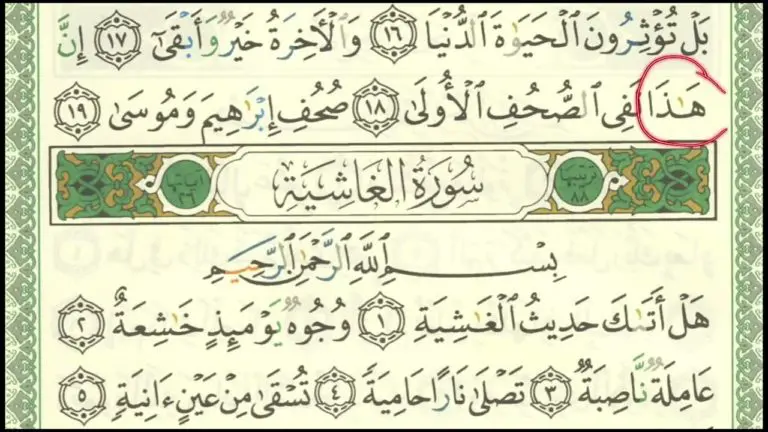 بَلْ تُؤْثِرُونَ ٱلْحَيَوٰةَ ٱلدُّنْيَا ١٦ وَٱلْأَخِرَةُ خَيْرٌ وَأَبْقَىٰٓ ١٧ إِنَّ
هَـٰذَا لَفِى ٱلصُّحُفِ ٱلْأُولَىٰ ١٨ صُحُفِ إِبْرَٰهِيمَ وَمُوسَىٰ ١٩
ترتيبها ٨٨ سُورَةُ الغَاشِيَةِ آياتها ٢٦
بِسْمِ ٱللَّهِ ٱلرَّحْمَٰنِ ٱلرَّحِيمِ
هَلْ أَتَىٰكَ حَدِيثُ ٱلْغَـٰشِيَةِ ١ وُجُوهٌ يَوْمَئِذٍ خَـٰشِعَةٌ ٢
عَامِلَةٌ نَّاصِبَةٌ ٣ تَصْلَىٰ نَارًا حَامِيَةً ٤ تُسْقَىٰ مِنْ عَيْنٍ ءَانِيَةٍ ٥